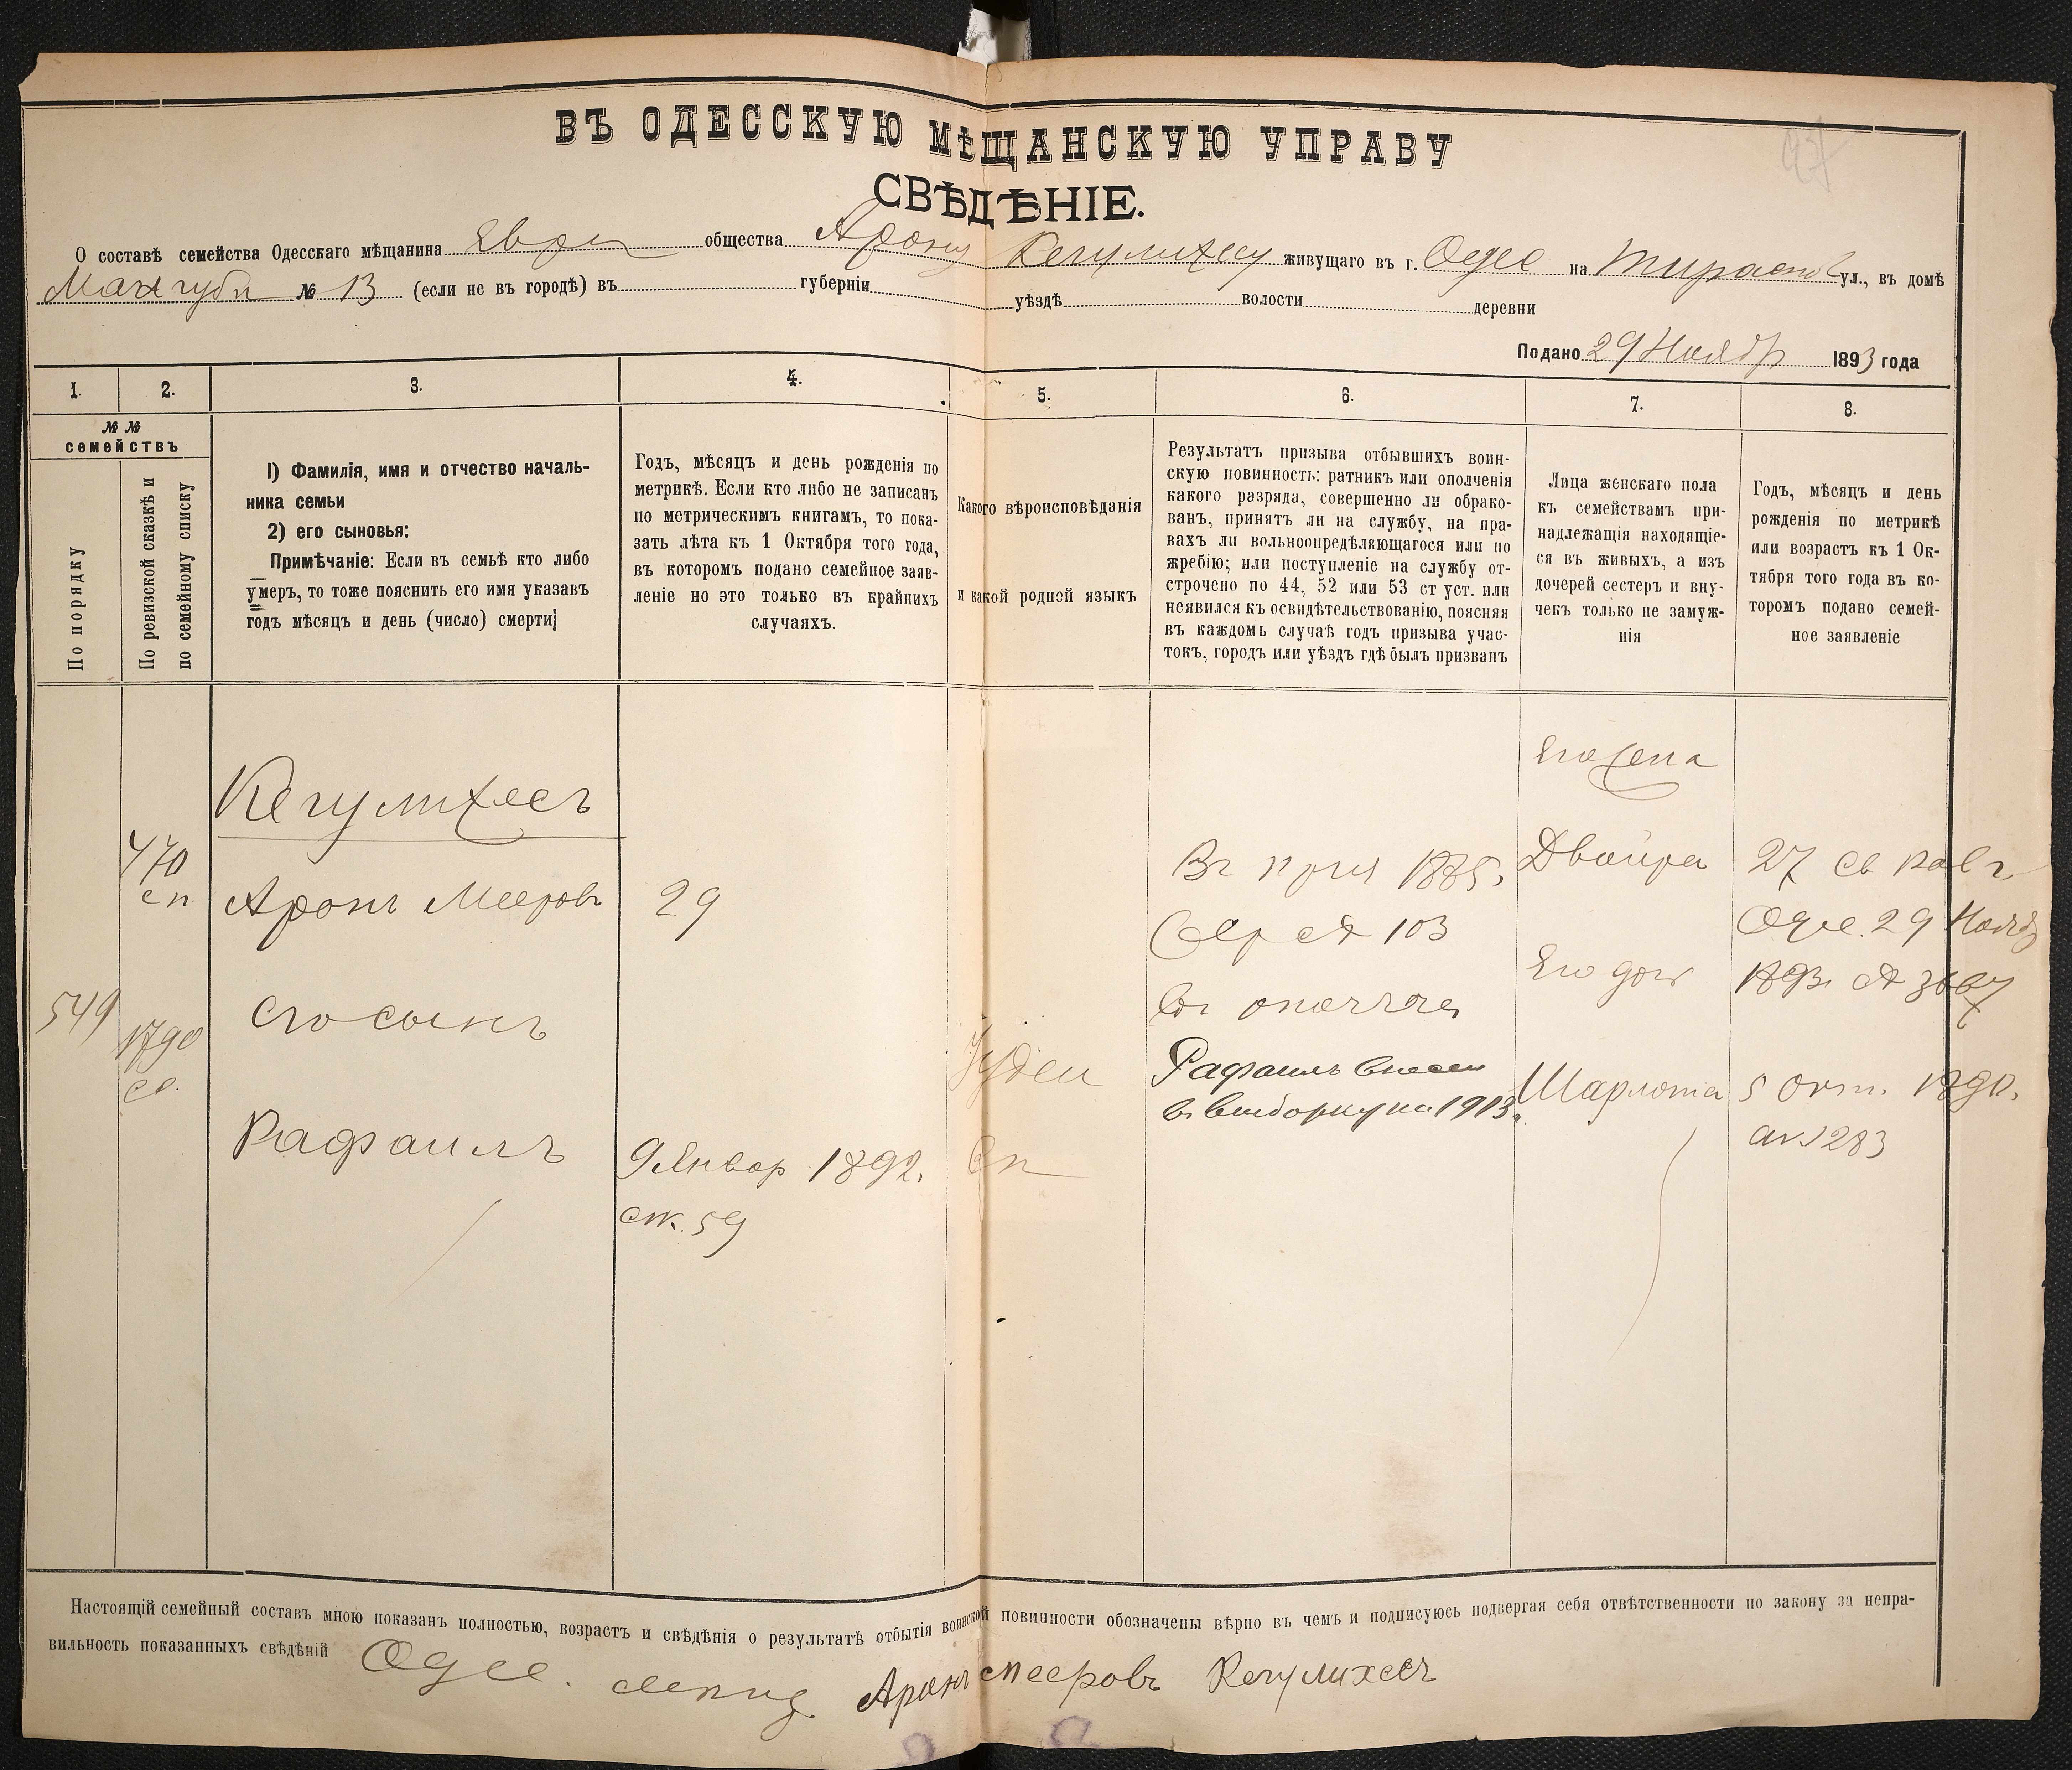 ВЪ ОДЕССКУЮ МѢЩАНСКУЮ УПРАВУ
СВѢДѢНІЕ.
О составѣ семейства Одесскаго мѣщанина Евре общества Арона Кегулихесу живущаго въ г. Одес на Тираспол ул., въ домѣ
Мангуби № 13 (если не въ городѣ) въ губерніи уѣздѣ волости деревни
Подано 29 Ноябр 1893 года
1. 2. 3. 4. 5. 6. 7. 8.
№ №
семействъ
По порядку
По ревизской сказкѣ и
по семейному списку
1) Фамилія, имя и отчество началь-
ника семьи
2) его сыновья:
Примѣчаніе: Если въ семьѣ кто либо
умеръ, то тоже пояснить его имя указавъ
годъ мѣсяцъ и день (число) смерти
Годъ, мѣсяцъ и день рожденія по
метрикѣ. Если кто либо не записанъ
по метрическимъ книгамъ, то пока-
зать лѣта къ 1 Октября того года,
въ которомъ подано семейное заяв-
леніе но это только въ крайнихъ
случаяхъ.
Какого вѣроисповѣданія
и какой родной языкъ
Результатъ призыва отбывшихъ воин-
скую повинность: ратникъ или ополченія
какого разряда, совершенно ли обрако-
ванъ, принятъ ли на службу, на пра-
вахъ ли вольноопредѣляющагося или по
жребію; или поступленіе на службу от-
строчено по 44, 52 или 53 ст уст. или
неявился къ освидѣтельствованію, поясняя
въ каждомъ случаѣ годъ призыва учас-
токъ, городъ или уѣздъ гдѣ былъ призванъ
Лица женскаго пола
къ семействамъ при-
надлежащія находящіе-
ся въ живыхъ, а изъ
дочерей сестеръ и вну-
чекъ только не замуж-
нія
Годъ, мѣсяцъ и день
рожденія по метрикѣ
или возрастъ къ 1 Ок-
тября того года въ ко-
торомъ подано семей-
ное заявленіе
Кегулихесъ
470
сп
Аронъ Мееровъ
29
549
1790
его сынъ
Рафаилъ
9 Январ 1892.
ст. 59
Іудеи
Въ при 1885.
103
въ
Рафаилъ внесен
въ выборку на 1913г.
Его жена
Двойра
Его доч
Шарлота
27 св рав.
Одес. 29 Нояб
1893. № 3667
5 Окт. 1890.
ак. 1283
Настоящій семейный составъ мною показанъ полностью, возрастъ и свѣдѣнія о результатѣ отбытія воинской повинности обозначены вѣрно въ чемъ и подписуюсь подвергая себя отвѣтственности по закону за непра-
вильность показанныхъ свѣдѣній Одес. Аронъ Мееровъ Кегулихесъ